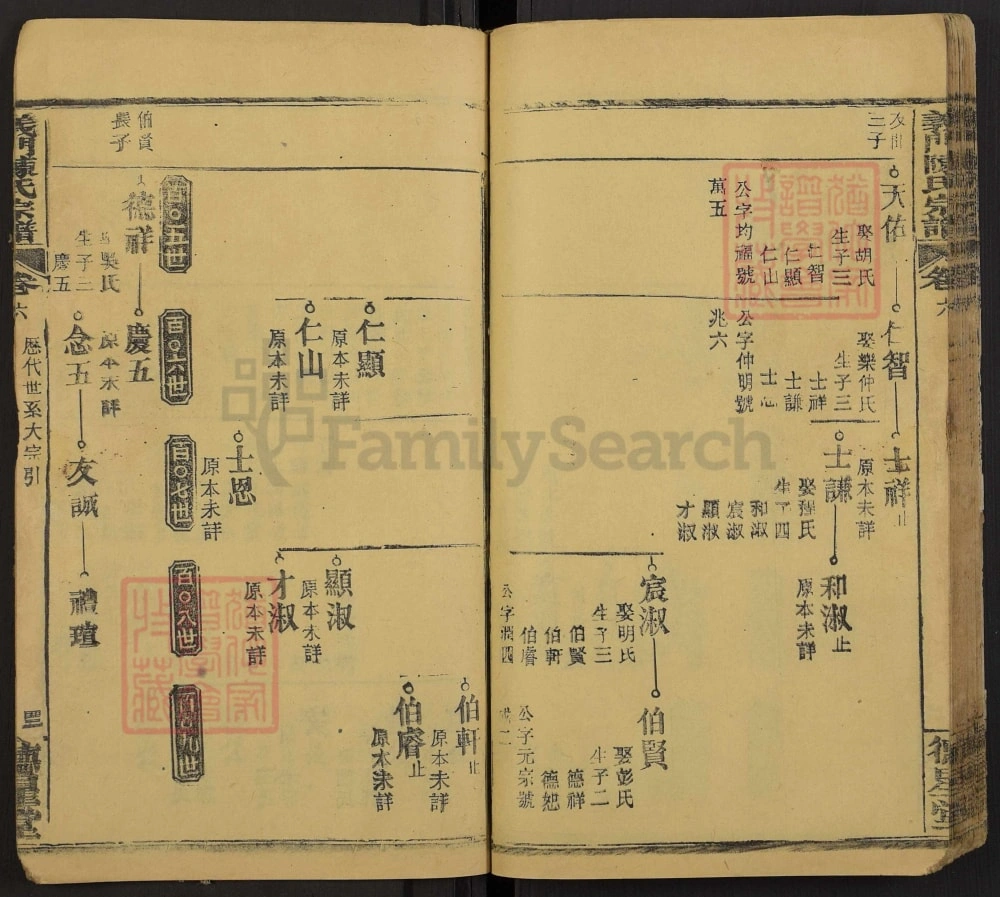 義門陳氏宗譜
卷六
德星堂
友
二子
天佑
娶胡氏
生子三
仁智
仁顯
仁山
公字均福號
萬五
仁智
娶樂仲氏
生子三
士祥
士謙
士
公字仲明號
兆六
士祥
止
原本未詳
士謙
娶程氏
生子四
和淑
宸淑
顯淑
才淑
和淑
止
原本未詳
宸淑
娶明氏
生子三
伯賢
伯軒
伯睿
公字潤國
伯賢
娶彭氏
生子二
德祥
德恕
公字元宗號
FamilySearch
伯軒
止
原本未詳
伯睿
止
原本未詳
仁顯
原本未詳
仁山
原本未詳
士恩
原本未詳
顯淑
原本未詳
才淑
原本未詳
百〇五世
百〇六世
百〇七世
百〇八世
百〇九世
伯賢
長子
德祥
吳氏
生子二
慶五
慶五
原本未詳
念五
友誠
禮瑄
義門陳氏宗譜
卷六
歷代世系大宗引
德星堂